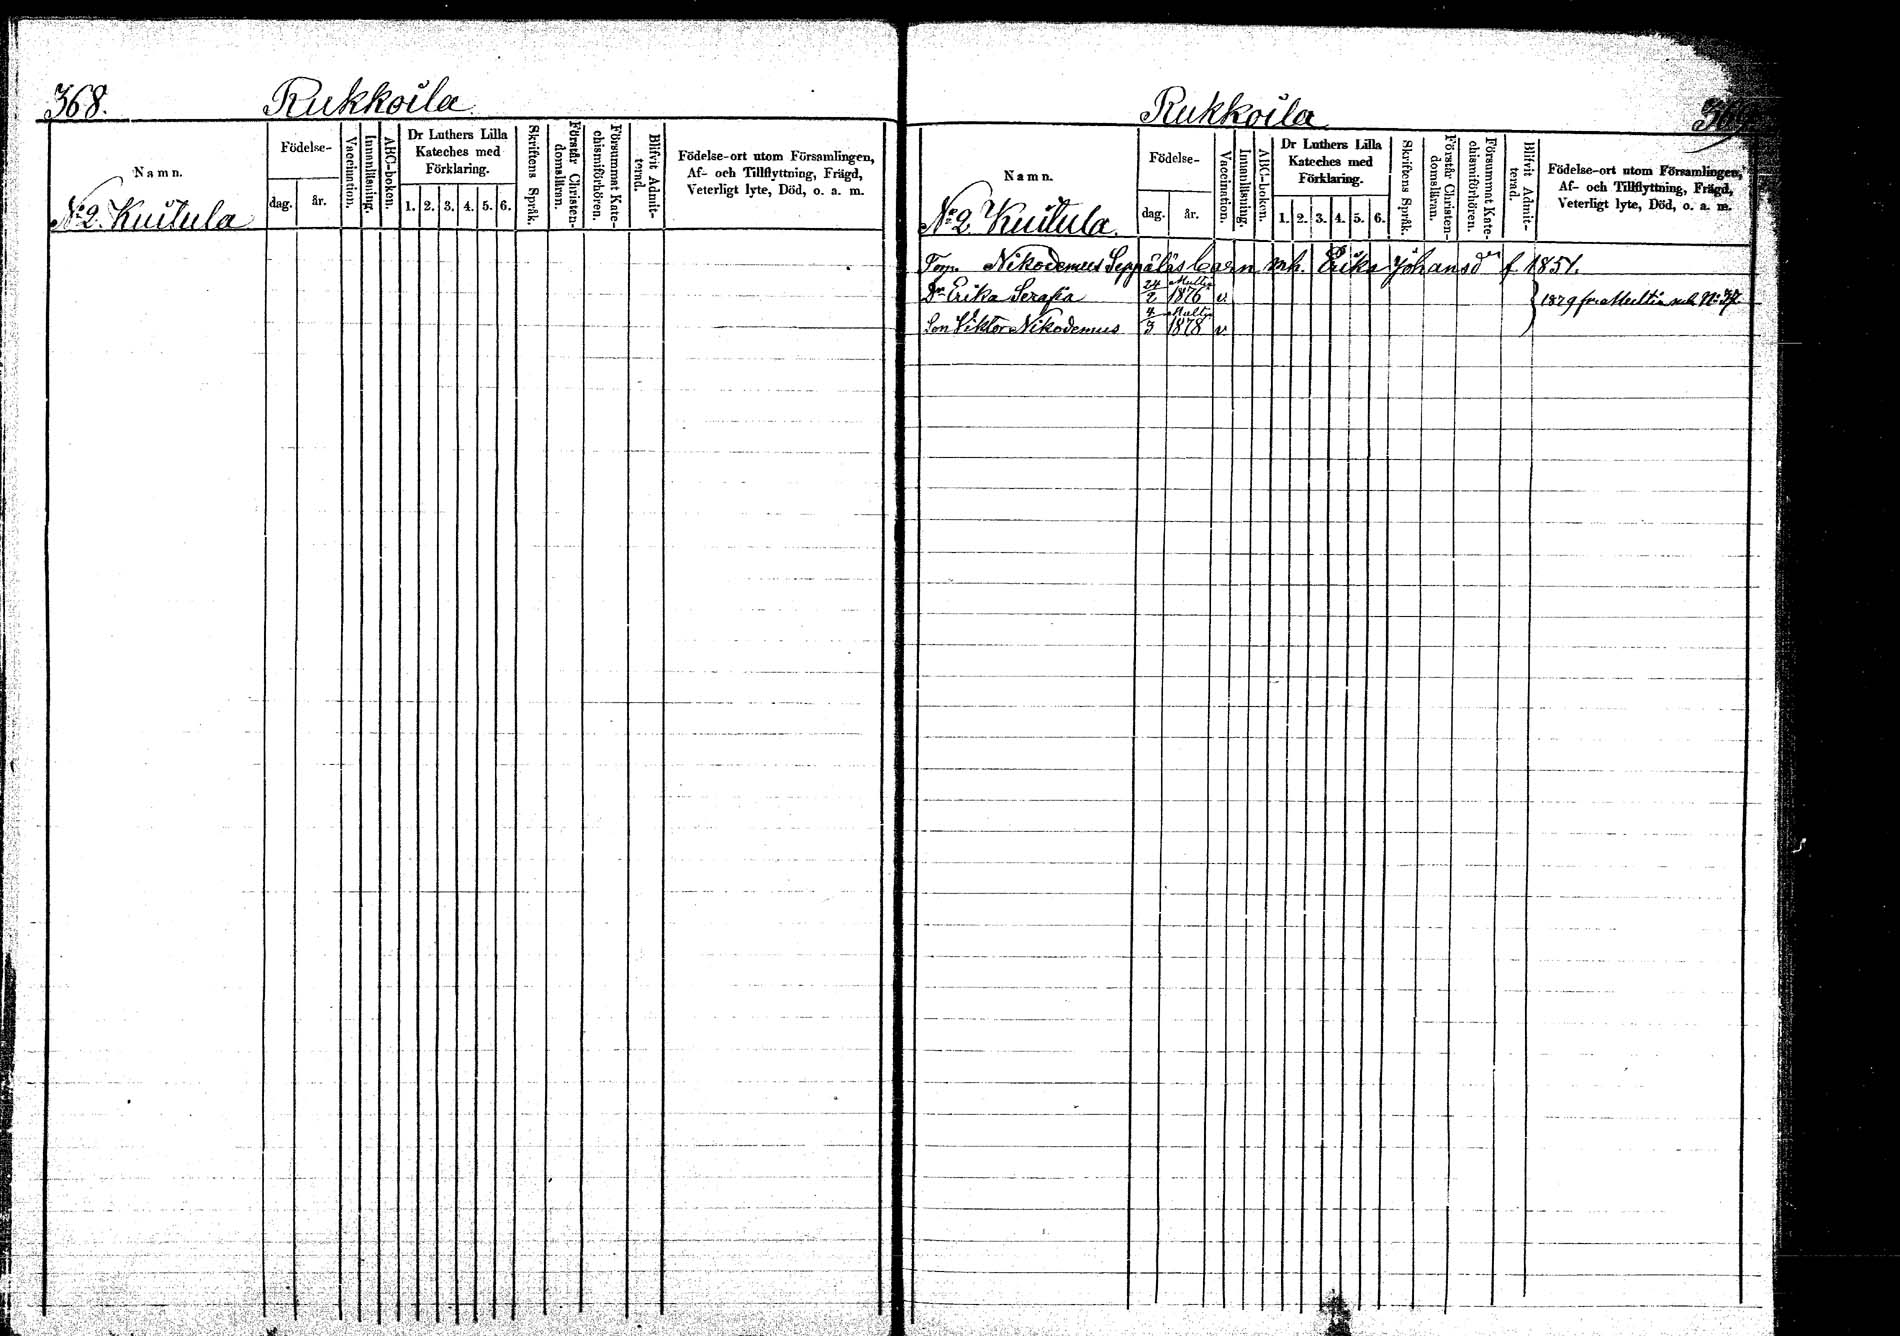 368.
Rukkoila
Namn.
Födelse-
dag. år.
Vaccination.
Innanläsning.
ABC-boken.
Dr Luthers Lilla
Kateches med
Förklaring.
1. 2. 3. 4. 5. 6.
Skriftens Språk.
Förstår Christen-
domsläran.
Försummat Kate-
chismiförhören.
Blifvit Admit-
terad.
Födelse-ort utom Församlingen,
Af- och Tillflyttning, Frägd,
Veterligt lyte, Död, o. a. m.
No 2. Kuitula
Rukkoila
369
Namn.
Födelse-
dag. år.
Vaccination.
Innanläsning.
ABC-boken.
Dr Luthers Lilla
Kateches med
Förklaring.
1. 2. 3. 4. 5. 6.
Skriftens Språk.
Förstår Christen-
domsläran.
Försummat Kate-
chismiförhören.
Blifvit Admit-
terad.
Födelse-ort utom Församlingen,
Af- och Tillflyttning, Frägd,
Veterligt lyte, Död, o. a. m.
No 2. Kuitula.
Torp. Nikodemus Seppäläs barn mh. Erika Johansdr f. 1851.
Dr Erika Serafia 24/2 Multia 1876 v.
1879 fr. Multia sub No 37
Son Viktor Nikodemus 4/3 Multia 1878 v.